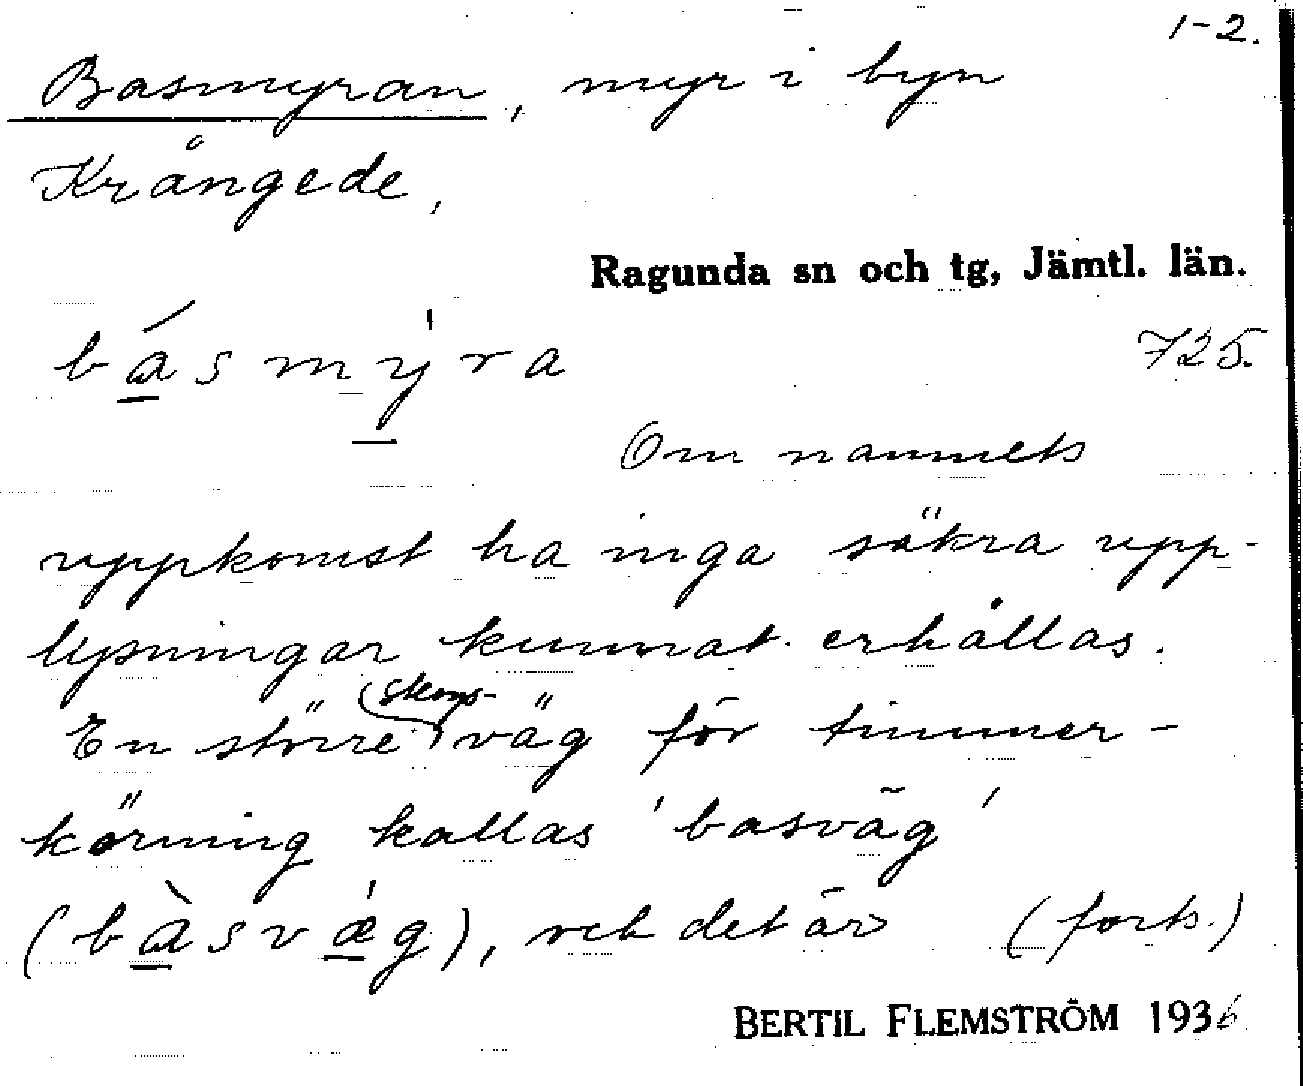 1-2.
Basmyran, myr i byn
Krångede,
Ragunda sn och tg, Jämtl. län.
básmýra
725.
Om namnets
uppkomst ha inga säkra upp-
lysningar kunnat erhållas.
En större skogs-väg för timmer-
körning kallas 'basväg'
(bàsvǽg), och det är (forts.)
BERTIL FLEMSTRÖM 1936